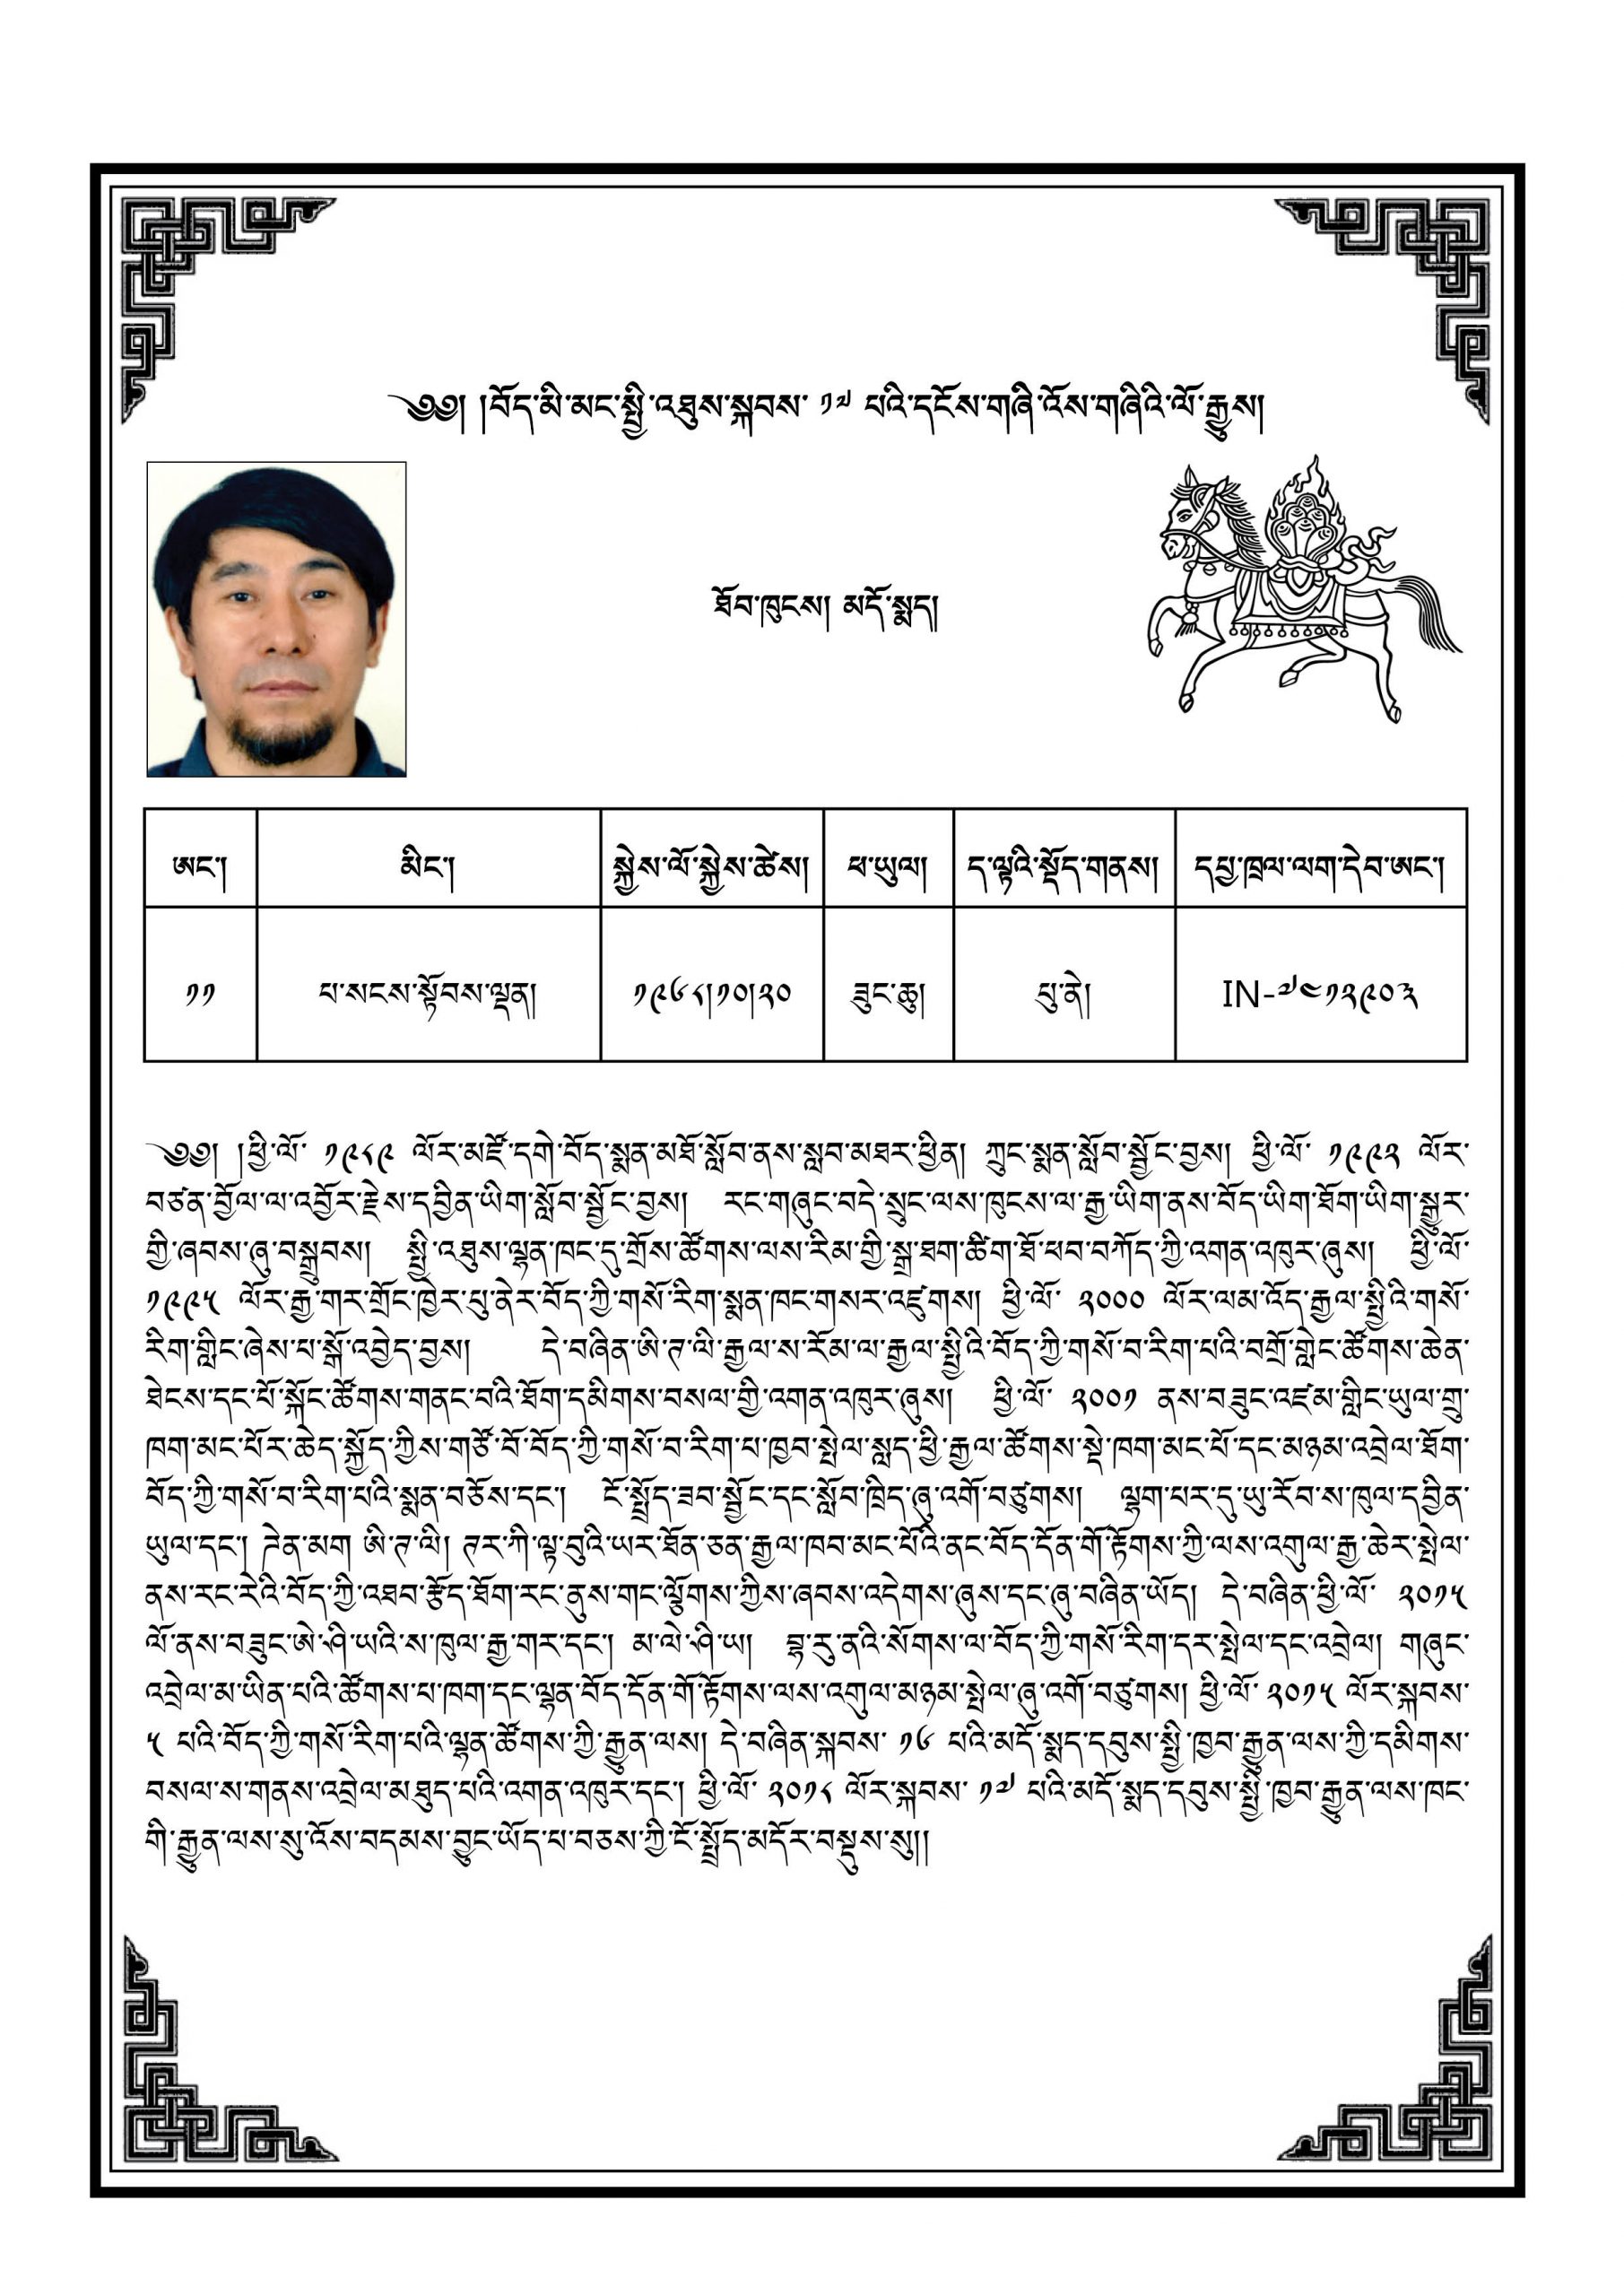 ༄༅། །བོད་མི་མང་སྤྱི་འཐུས་སྐབས་ ༡༧ པའི་དངོས་གཞི་འོས་གཞིའི་ལོ་རྒྱུས།
ཐོབ་ཁུངས། མདོ་སྨད།
ཨང་། མིང་། སྐྱེས་ལོ་སྐྱེས་ཚེས། ཕ་ཡུལ། ད་ལྟའི་སྡོད་གནས། དཔྱ་ཁྲལ་ལག་དེབ་ཨང་།
༡༡ པ་སངས་སྟོབས་ལྡན། ༡༩༦༨།༡༠།༢༠ ཟུང་ཆུ། པུ་ནེ། IN-༧༤༡༢༩༠༣
༄༅། །ཕྱི་ལོ་ ༡༩༨༩ ལོར་མཛོ་དགེ་བོད་སྨན་མཐོ་སློབ་ནས་སླབ་མཐར་ཕྱིན། ཀྲུང་སྨན་སློབ་སྦྱོང་བྱས། ཕྱི་ལོ་ ༡༩༩༢ ལོར་
བཙན་བྱོལ་ལ་འབྱོར་རྗེས་དབྱིན་ཡིག་སློབ་སྦྱོང་བྱས། རང་གཞུང་བདེ་སྲུང་ལས་ཁུངས་ལ་རྒྱ་ཡིག་ནས་བོད་ཡིག་ཐོག་ཡིག་སྒྱུར་
གྱི་ཞབས་ཞུ་བསྒྲུབས། སྤྱི་འཐུས་ལྷན་ཁང་དུ་གྲོས་ཚོགས་ལས་རིམ་གྱི་སྒྲ་ཐག་ཚིག་ཐོ་ཕབ་བཀོད་ཀྱི་འགན་འཁུར་ཞུས། ཕྱི་ལོ་
༡༩༩༥ ལོར་རྒྱ་གར་གྲོང་ཁྱེར་པུ་ནེར་བོད་ཀྱི་གསོ་རིག་སྨན་ཁང་གསར་འཛུགས། ཕྱི་ལོ་ ༢༠༠༠ ལོར་ལམ་འོད་རྒྱལ་སྤྱིའི་གསོ་
རིག་གླིང་ཞེས་པ་སྒོ་འབྱེད་བྱས། དེ་བཞིན་ཨི་ཊ་ལི་རྒྱལ་ས་རོམ་ལ་རྒྱལ་སྤྱིའི་བོད་ཀྱི་གསོ་བ་རིག་པའི་བགྲོ་གླེང་ཚོགས་ཆེན་
ཐེངས་དང་པོ་སྐོང་ཚོགས་གནང་བའི་ཐོག་དམིགས་བསལ་གྱི་འགན་འཁུར་ཞུས། ཕྱི་ལོ་ ༢༠༠༡ ནས་བཟུང་འཛམ་གླིང་ཡུལ་གྲུ་
ཁག་མང་པོར་ཆེད་སྐྱོད་ཀྱིས་གཙོ་བོ་བོད་ཀྱི་གསོ་བ་རིག་པ་ཁྱབ་སྤེལ་སླད་ཕྱི་རྒྱལ་ཚོགས་སྡེ་ཁག་མང་པོ་དང་མཉམ་འབྲེལ་ཐོག་
བོད་ཀྱི་གསོ་བ་རིག་པའི་སྨན་བཅོས་དང་། ངོ་སྤྲོད་ཟབ་སྦྱོང་དང་སློབ་ཁྲིད་ཞུ་འགོ་བཙུགས། ལྷག་པར་དུ་ཡུ་རོབ་ས་ཁུལ་དབྱིན་
ཡུལ་དང་། ཌེན་མག ཨི་ཊ་ལི། ཊར་ཀི་ལྟ་བུའི་ཡར་ཐོན་ཅན་རྒྱལ་ཁབ་མང་པོའི་ནང་བོད་དོན་གོ་རྟོགས་ཀྱི་ལས་འགུལ་རྒྱ་ཆེར་སྤེལ་
ནས་རང་རེའི་བོད་ཀྱི་འཐབ་རྩོད་ཐོག་རང་ནུས་གང་ལྕོགས་ཀྱིས་ཞབས་འདེགས་ཞུས་དང་ཞུ་བཞིན་ཡོད། དེ་བཞིན་ཕྱི་ལོ་ ༢༠༡༥
ལོ་ནས་བཟུང་ཨེ་ཤི་ཡའི་ས་ཁུལ་རྒྱ་གར་དང་། མ་ལེ་ཤི་ཡ། བྷ་རུ་ནའི་སོགས་ལ་བོད་ཀྱི་གསོ་རིག་དར་སྤེལ་དང་འབྲེལ། གཞུང་
འབྲེལ་མ་ཡིན་པའི་ཚོགས་པ་ཁག་དང་ལྷན་བོད་དོན་གོ་རྟོགས་ལས་འགུལ་མཉམ་སྤེལ་ཞུ་འགོ་བཙུགས། ཕྱི་ལོ་ ༢༠༡༥ ལོར་སྐབས་
༥ པའི་བོད་ཀྱི་གསོ་རིག་པའི་ལྷན་ཚོགས་ཀྱི་རྒྱུན་ལས། དེ་བཞིན་སྐབས་ ༡༦ པའི་མདོ་སྨད་དབུས་སྤྱི་ཁྱབ་རྒྱུན་ལས་ཀྱི་དམིགས་
བསལ་ས་གནས་འབྲེལ་མཐུད་པའི་འགན་འཁུར་དང་། ཕྱི་ལོ་ ༢༠༡༨ ལོར་སྐབས་ ༡༧ པའི་མདོ་སྨད་དབུས་སྤྱི་ཁྱབ་རྒྱུན་ལས་ཁང་
གི་རྒྱུན་ལས་སུ་འོས་བདམས་བྱུང་ཡོད་པ་བཅས་ཀྱི་ངོ་སྤྲོད་མདོར་བསྡུས་སུ།།